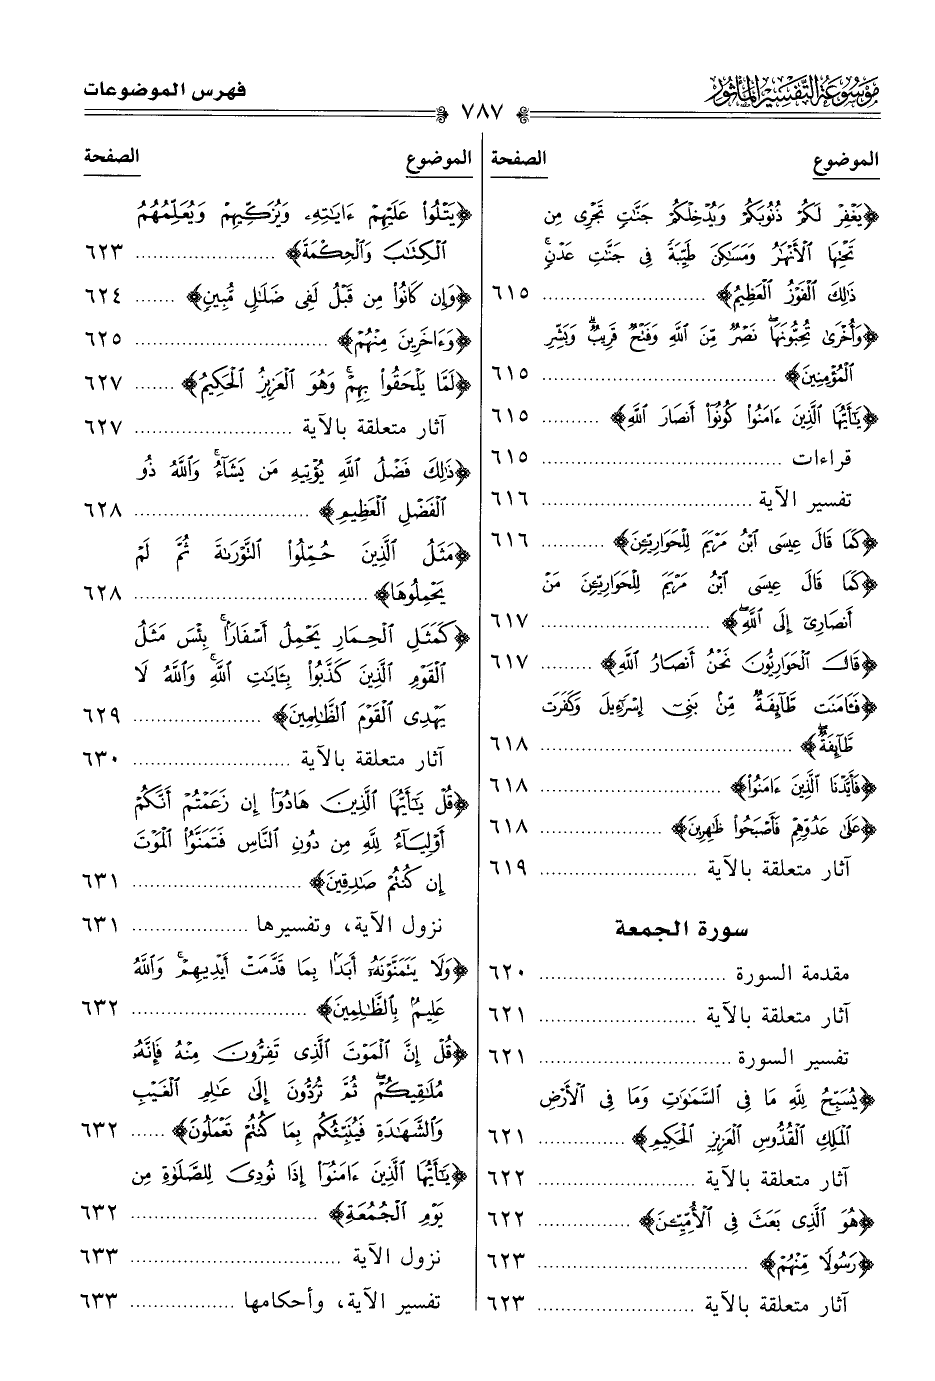 موسوعة التفسير المأثور
٧٨٧
فهرس الموضوعات
الموضوع الصفحة
﴿يَغْفِرْ لَكُمْ ذُنُوبَكُمْ وَيُدْخِلْكُمْ جَنَّاتٍ تَجْرِي مِن
تَحْتِهَا الْأَنْهَارُ وَمَسَاكِنَ طَيِّبَةً فِي جَنَّاتِ عَدْنٍ ۚ
ذَلِكَ الْفَوْزُ الْعَظِيمُ﴾ .................... ٦١٥
﴿وَأُخْرَى تُحِبُّونَهَا ۖ نَصْرٌ مِّنَ اللَّهِ وَفَتْحٌ قَرِيبٌ ۗ وَبَشِّرِ
الْمُؤْمِنِينَ﴾ .................... ٦١٥
﴿يَا أَيُّهَا الَّذِينَ ءَامَنُوا كُونُوا أَنصَارَ اللَّهِ﴾ .......... ٦١٥
قراءات .................... ٦١٥
تفسير الآية .................... ٦١٦
﴿كَمَا قَالَ عِيسَى ابْنُ مَرْيَمَ لِلْحَوَارِيِّينَ﴾ .......... ٦١٦
﴿كَمَا قَالَ عِيسَى ابْنُ مَرْيَمَ لِلْحَوَارِيِّينَ مَنْ
أَنصَارِي إِلَى اللَّهِ ۖ﴾ .................... ٦١٧
﴿قَالَ الْحَوَارِيُّونَ نَحْنُ أَنصَارُ اللَّهِ﴾ .......... ٦١٧
﴿فَـَٔامَنَت طَّآئِفَةٌ مِّنۢ بَنِي إِسْرَاءِيلَ وَكَفَرَت
طَّآئِفَةٌ ۖ﴾ .................... ٦١٨
﴿فَأَيَّدْنَا الَّذِينَ ءَامَنُوا﴾ .................... ٦١٨
﴿عَلَى عَدُوِّهِمْ فَأَصْبَحُوا ظَاهِرِينَ﴾ .................... ٦١٨
آثار متعلقة بالآية .................... ٦١٩
سورة الجمعة
مقدمة السورة .................... ٦٢٠
آثار متعلقة بالآية .................... ٦٢١
تفسير السورة .................... ٦٢١
﴿يُسَبِّحُ لِلَّهِ مَا فِي السَّمَاوَاتِ وَمَا فِي الْأَرْضِ
الْمَلِكِ الْقُدُّوسِ الْعَزِيزِ الْحَكِيمِ﴾ .......... ٦٢١
آثار متعلقة بالآية .................... ٦٢٢
﴿هُوَ الَّذِي بَعَثَ فِي الْأُمِّيِّينَ﴾ .......... ٦٢٢
﴿رَسُولًا مِّنْهُمْ﴾ .................... ٦٢٣
آثار متعلقة بالآية .................... ٦٢٣
الموضوع الصفحة
﴿يَتْلُوا عَلَيْهِمْ ءَايَاتِهِ وَيُزَكِّيهِمْ وَيُعَلِّمُهُمُ
الْكِتَابَ وَالْحِكْمَةَ﴾ .................... ٦٢٣
﴿وَإِن كَانُوا مِن قَبْلُ لَفِي ضَلَالٍ مُّبِينٍ﴾ ....... ٦٢٤
﴿وَءَاخَرِينَ مِنْهُمْ﴾ .................... ٦٢٥
﴿لَمَّا يَلْحَقُوا بِهِمْ ۚ وَهُوَ الْعَزِيزُ الْحَكِيمُ﴾ ....... ٦٢٧
آثار متعلقة بالآية .................... ٦٢٧
﴿ذَلِكَ فَضْلُ اللَّهِ يُؤْتِيهِ مَن يَشَاءُ ۚ وَاللَّهُ ذُو
الْفَضْلِ الْعَظِيمِ﴾ .................... ٦٢٨
﴿مَثَلُ الَّذِينَ حُمِّلُوا التَّوْرَاةَ ثُمَّ لَمْ
يَحْمِلُوهَا﴾ .................... ٦٢٨
﴿كَمَثَلِ الْحِمَارِ يَحْمِلُ أَسْفَارًا ۚ بِئْسَ مَثَلُ
الْقَوْمِ الَّذِينَ كَذَّبُوا بِـَٔايَاتِ اللَّهِ ۚ وَاللَّهُ لَا
يَهْدِي الْقَوْمَ الظَّالِمِينَ﴾ .................... ٦٢٩
آثار متعلقة بالآية .................... ٦٣٠
﴿قُلْ يَا أَيُّهَا الَّذِينَ هَادُوا إِن زَعَمْتُمْ أَنَّكُمْ
أَوْلِيَاءُ لِلَّهِ مِن دُونِ النَّاسِ فَتَمَنَّوُا الْمَوْتَ
إِن كُنتُمْ صَادِقِينَ﴾ .................... ٦٣١
نزول الآية، وتفسيرها .................... ٦٣١
﴿وَلَا يَتَمَنَّوْنَهُ أَبَدًا بِمَا قَدَّمَتْ أَيْدِيهِمْ ۚ وَاللَّهُ
عَلِيمٌ بِالظَّالِمِينَ﴾ .................... ٦٣٢
﴿قُلْ إِنَّ الْمَوْتَ الَّذِي تَفِرُّونَ مِنْهُ فَإِنَّهُ
مُلَاقِيكُمْ ۖ ثُمَّ تُرَدُّونَ إِلَى عَالِمِ الْغَيْبِ
وَالشَّهَادَةِ فَيُنَبِّئُكُم بِمَا كُنتُمْ تَعْمَلُونَ﴾ ...... ٦٣٢
﴿يَا أَيُّهَا الَّذِينَ ءَامَنُوا إِذَا نُودِيَ لِلصَّلَاةِ مِن
يَوْمِ الْجُمُعَةِ﴾ .................... ٦٣٢
نزول الآية .................... ٦٣٣
تفسير الآية، وأحكامها .................... ٦٣٣